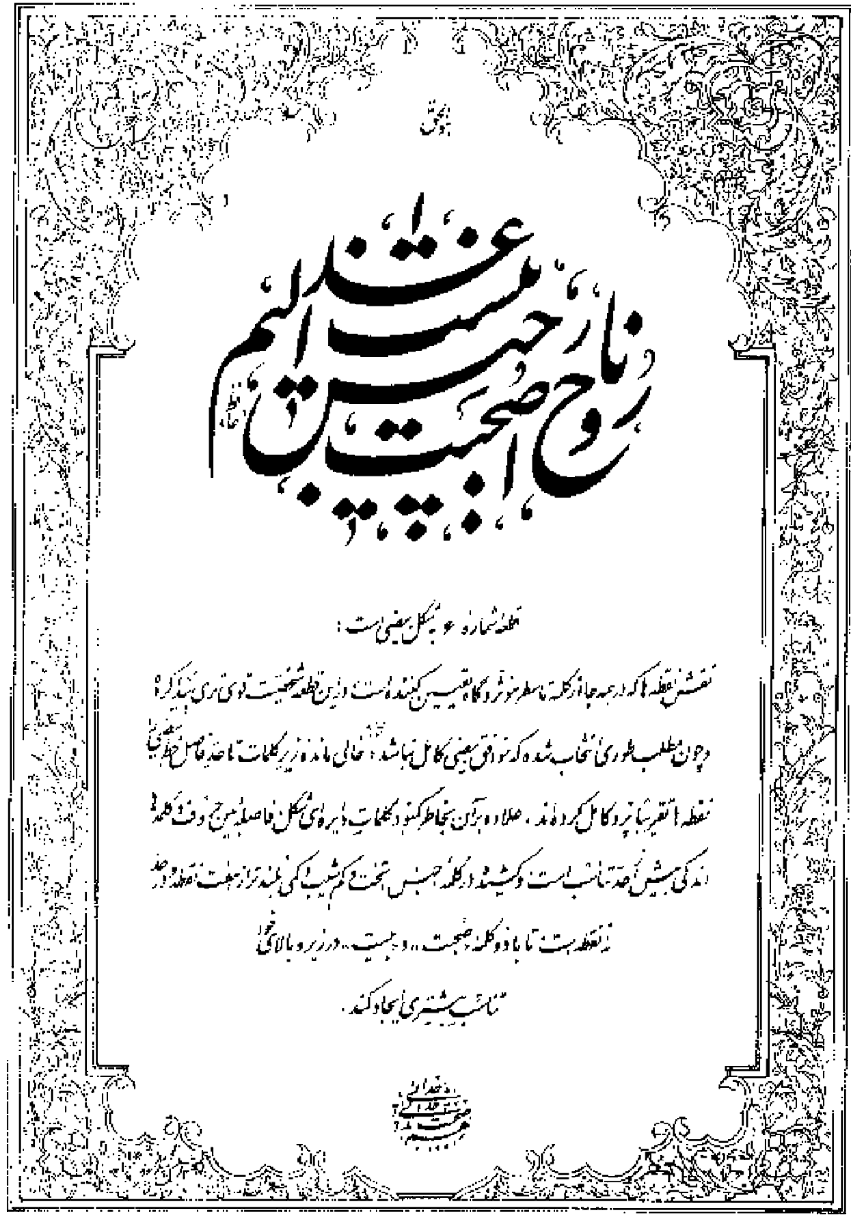 هوالحق
روح را صحبت ناجنس عذابیست الیم
حافظ
قطعه شماره ۶ به شکل بیضی است :
نقش نقطه ها که در همه جا از کلمه تا سطر موثر و گاه تعیین کننده است در این قطعه شخصیت قوی تری پیدا کرده
و چون مطلب طوری انتخاب شده که موافق بیضی کامل نباشد؛ خالی مانده زیر کلمات تا حد فاصل خط بیضی را
نقطه ها تقریباً پر و کامل کرده اند . علاوه بر آن بخاطر کمبود کلمات دایره ای شکل فاصله بین حروف و کلمه ها
اندکی بیش از حد تناسب است و کشیده در کلمه جنس تخت و کم شیب و کمی بلندتر از هفت نقطه و در حد
نه نقطه است تا با دو کلمه «صحبت» و «بیست» در زیر و بالای خود
تناسب بیشتری ایجاد کند .